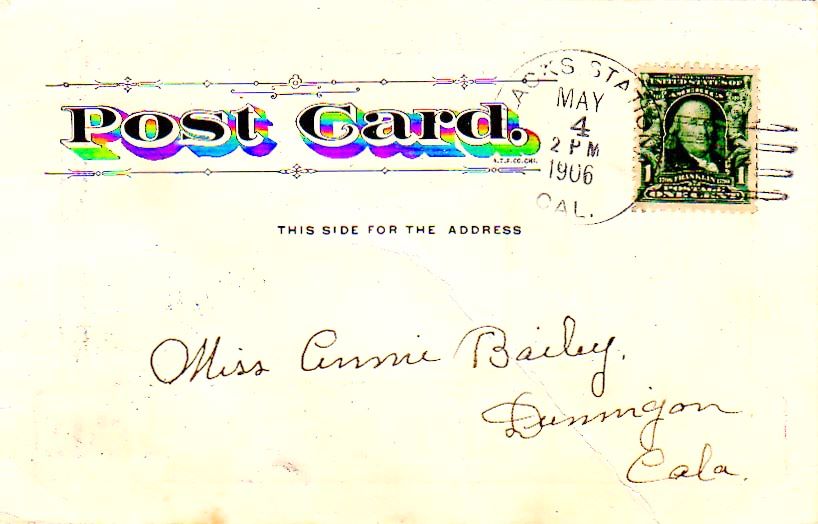 Post Card.
A.T.F. CO. CHI.
ACKS STATION
MAY
4
2 PM
1906
CAL.
UNITED STATES OF
AMERICA
1 FRANKLIN 1
ONE CENT
THIS SIDE FOR THE ADDRESS
Miss Annie Bailey.
Dunnigan
Cala.